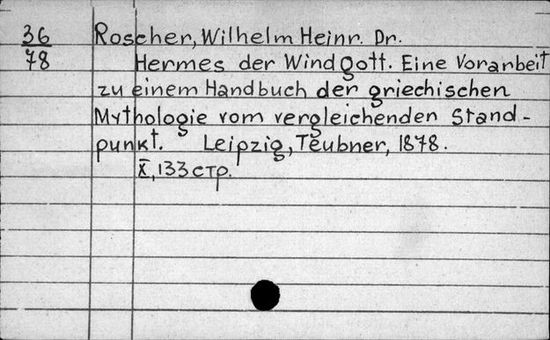 36
78
Roscher, Wilhelm Heinr. Dr.
Hermes der Windgott. Eine Vorarbeit
zu einem Handbuch der griechischen
Mythologie vom vergleichenden Stand-
punkt. Leipzig, Teubner, 1878.
X, 133 стр.